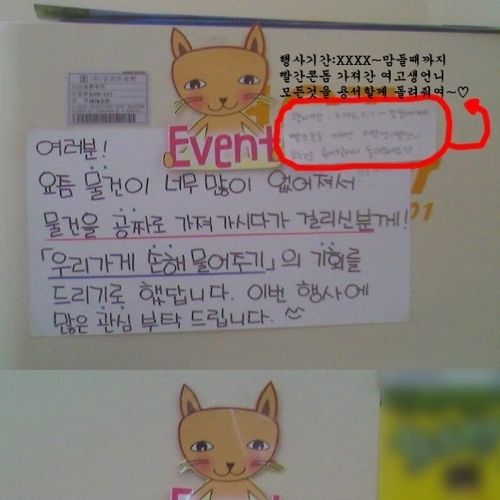 행사기간:XXXX~맘들때까지
빨간콘돔 가져간 여고생언니
모든것을 용서할께 돌려줘여~♡
Event
여러분!
요즘 물건이 너무 많이 없어져서
물건을 공짜로 가져가시다가 걸리신분께!
「우리가게 손해 물어주기」의 기회를
드리기로 했답니다. 이번 행사에
많은 관심 부탁 드립니다.
01